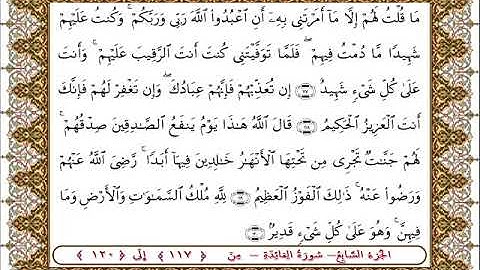 مَا قُلْتُ لَهُمْ إِلَّا مَآ أَمَرْتَنِى بِهِۦٓ أَنِ ٱعْبُدُوا۟ ٱللَّهَ رَبِّى وَرَبَّكُمْ ۚ وَكُنتُ عَلَيْهِمْ
شَهِيدًا مَّا دُمْتُ فِيهِمْ ۖ فَلَمَّا تَوَفَّيْتَنِى كُنتَ أَنتَ ٱلرَّقِيبَ عَلَيْهِمْ ۚ وَأَنتَ
عَلَىٰ كُلِّ شَىْءٍ شَهِيدٌ ﴿١١٧﴾ إِن تُعَذِّبْهُمْ فَإِنَّهُمْ عِبَادُكَ ۖ وَإِن تَغْفِرْ لَهُمْ فَإِنَّكَ
أَنتَ ٱلْعَزِيزُ ٱلْحَكِيمُ ﴿١١٨﴾ قَالَ ٱللَّهُ هَٰذَا يَوْمُ يَنفَعُ ٱلصَّٰدِقِينَ صِدْقُهُمْ ۚ
لَهُمْ جَنَّٰتٌ تَجْرِى مِن تَحْتِهَا ٱلْأَنْهَٰرُ خَٰلِدِينَ فِيهَآ أَبَدًا ۚ رَّضِىَ ٱللَّهُ عَنْهُمْ
وَرَضُوا۟ عَنْهُ ۚ ذَٰلِكَ ٱلْفَوْزُ ٱلْعَظِيمُ ﴿١١٩﴾ لِلَّهِ مُلْكُ ٱلسَّمَٰوَٰتِ وَٱلْأَرْضِ وَمَا
فِيهِنَّ ۚ وَهُوَ عَلَىٰ كُلِّ شَىْءٍ قَدِيرٌۢ ﴿١٢٠﴾
الجزء السابع - سورة المائدة - من ﴿ ١١٧ ﴾ إلى ﴿ ١٢٠ ﴾